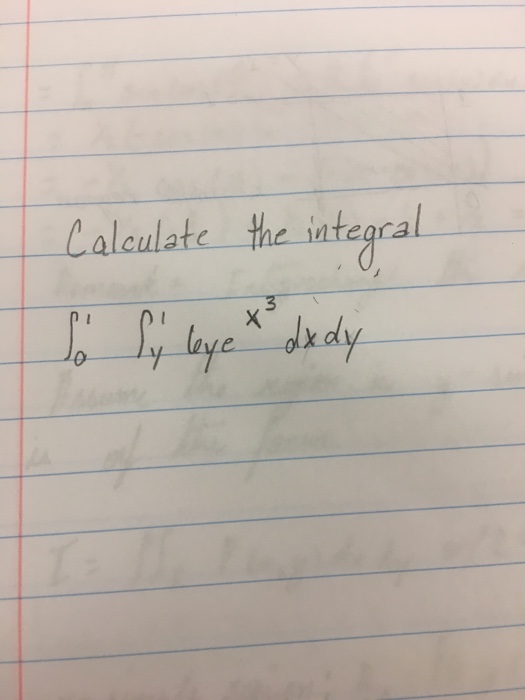 Calculate the integral
∫₀¹ ∫ᵧ¹ 6ye^x³ dxdy